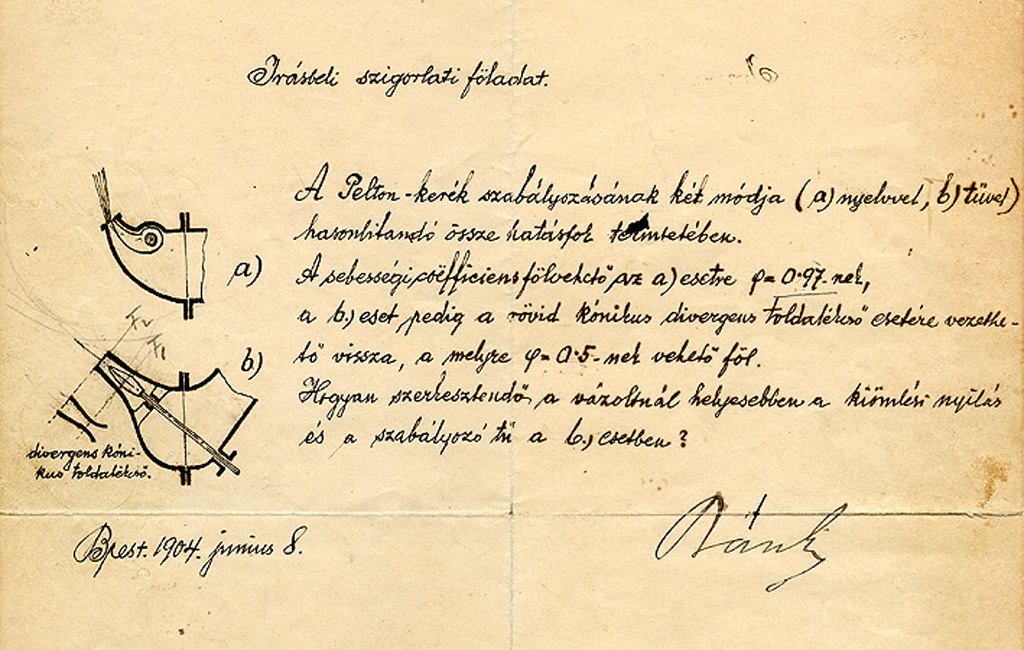 Irásbeli szigorlati föladat.
A Pelton-kerék szabályozásának két módja (a) nyelvvel, b) tűvel)
hasonlitandó össze hatásfok tekintetében.
A sebességi coëfficiens fölvehető az a) esetre φ = 0.97-nek,
a b.) eset pedig a rövid kónikus divergens toldatékcső esetére vezethe-
tő vissza, a melyre φ = 0.5-nek vehető föl.
Hogyan szerkesztendő a vázoltnál helyesebben a kiömlési nyilás
és a szabályozó tű a b.) esetben?
a)
b)
F2
F1
divergens kóni-
kus toldatékcső.
Bpest. 1904. junius 8.
Bánki